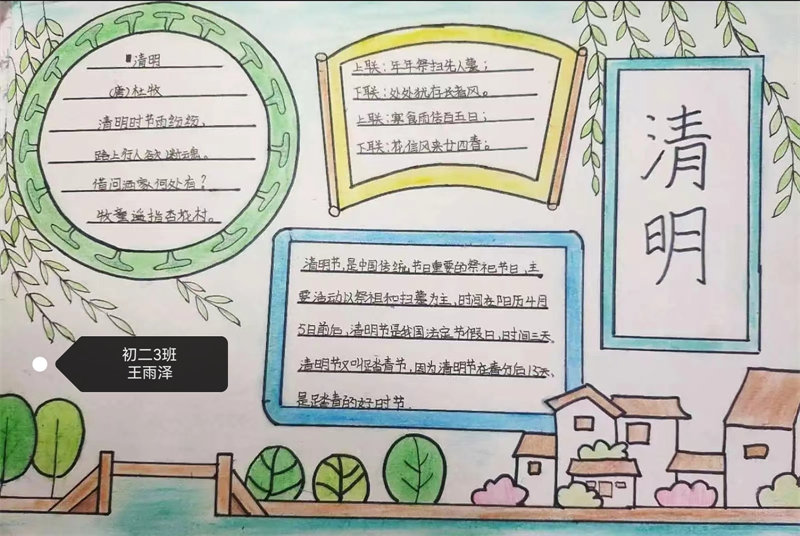 清明
(唐)杜牧
清明时节雨纷纷、
路上行人欲断魂。
借问酒家何处有？
牧童遥指杏花村。
上联：年年祭扫先人墓；
下联：处处犹存长者风。
上联：寒食雨信百五日；
下联：花信风来廿四春；
清明
清明节，是中国传统节日重要的祭祀节日，主
要活动以祭祖和扫墓为主，时间在阳历4月
5日前后，清明节是我国法定节假日，日时间三天、
清明节又叫踏青节，因为清明节在春分后15天、
是踏青的好时节
初二3班
王雨泽